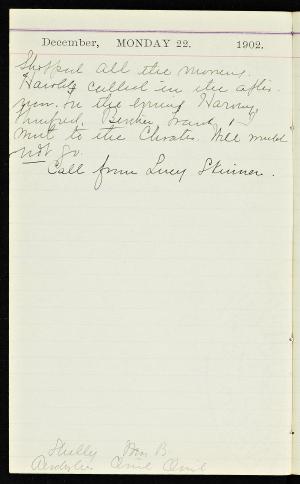 December, MONDAY 22. 1902.
Shopped all the morning.
Harold called in the after-
noon. In the evening Harvey,
Winifred, & I
went to the Choates. Will would
not go.
Call from Lucy Skinner.
Shelly Wm B